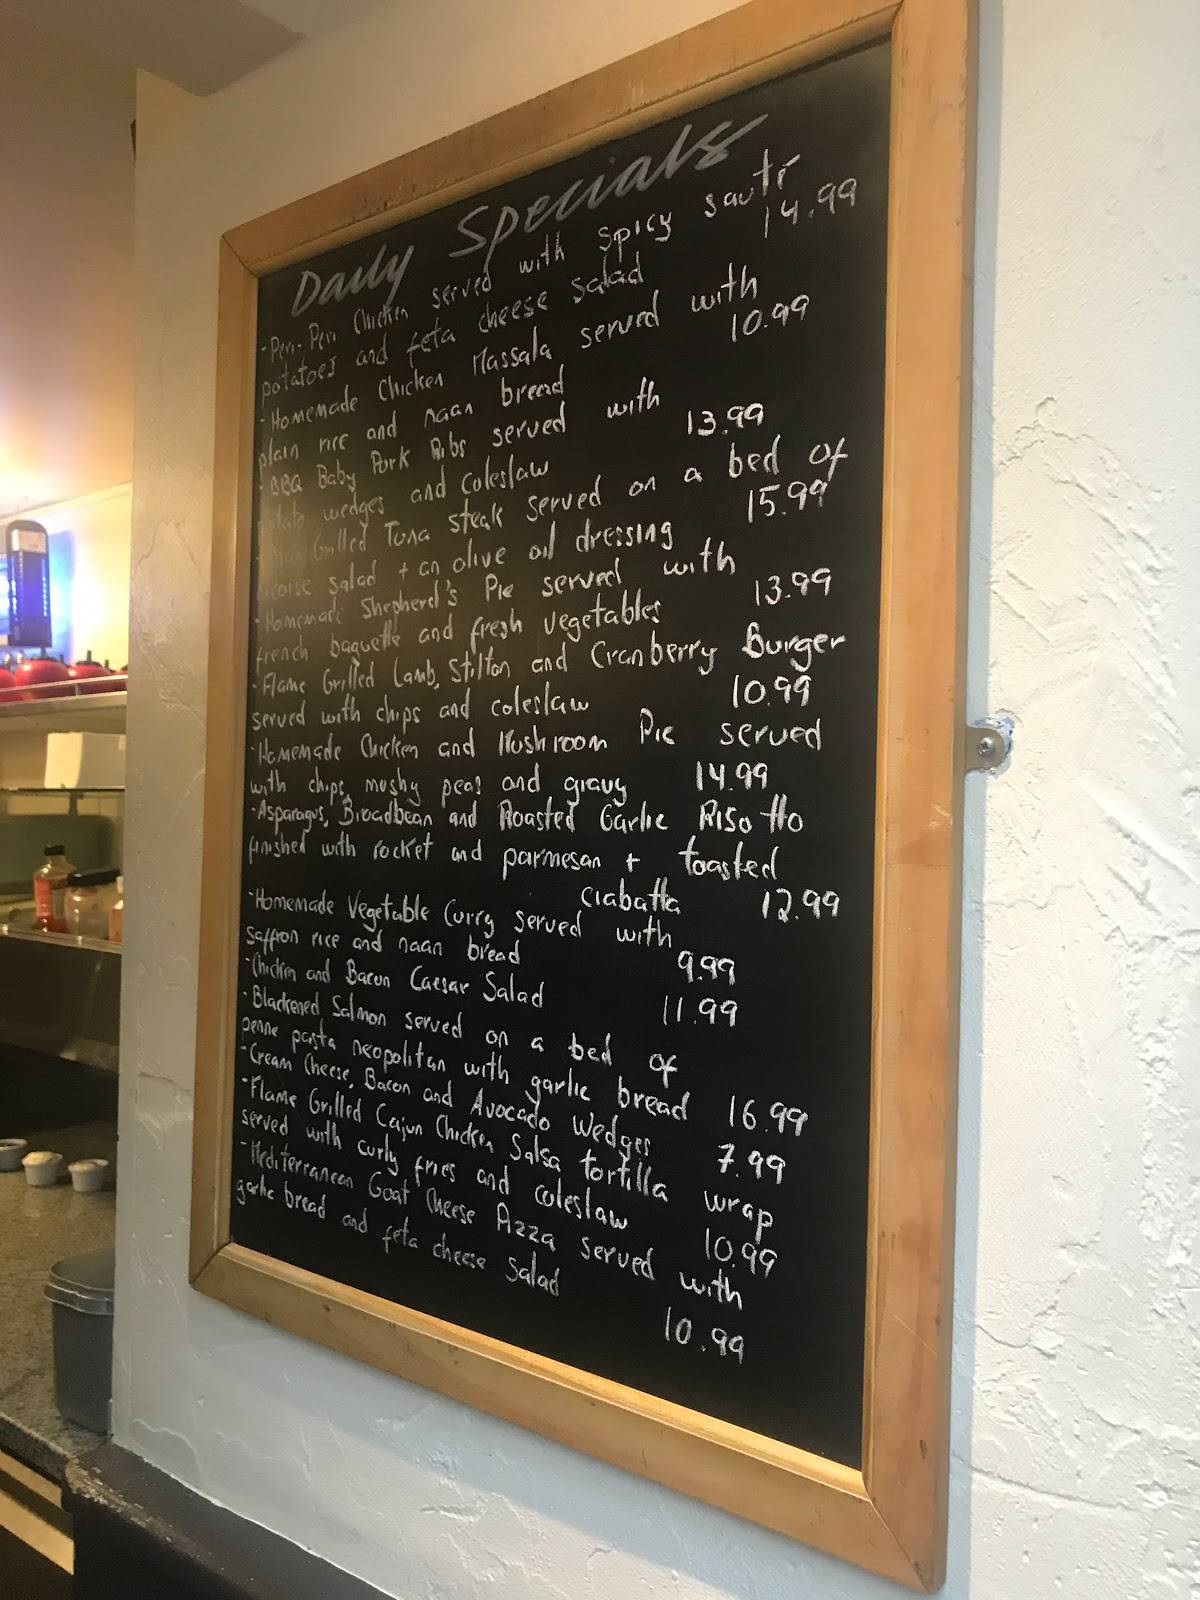 Daily Specials
-Peri-Peri Chicken served with spicy sauté
potatoes and feta cheese salad 14.99
-Homemade Chicken Massala served with
plain rice and naan bread 10.99
-BBQ Baby Pork Ribs served with
potato wedges and coleslaw 13.99
Grilled Tuna steak served on a bed of
salad + an olive oil dressing 15.99
-Homemade Shepherd's Pie served with
french baguette and fresh vegetables 13.99
-Flame Grilled Lamb, Stilton and Cranberry Burger
served with chips and coleslaw 10.99
-Homemade Chicken and Mushroom Pie served
with chips, mushy peas and gravy 14.99
-Asparagus, Broadbean and Roasted Garlic Risotto
finished with rocket and parmesan + toasted
ciabatta 12.99
-Homemade Vegetable Curry served with
saffron rice and naan bread 9.99
-Chicken and Bacon Caesar Salad 11.99
-Blackened Salmon served on a bed of
penne pasta neopolitan with garlic bread 16.99
-Cream Cheese, Bacon and Avocado Wedges 7.99
-Flame Grilled Cajun Chicken Salsa tortilla wrap
served with curly fries and coleslaw 10.99
-Mediterranean Goat Cheese Pizza served with
garlic bread and feta cheese salad 10.99